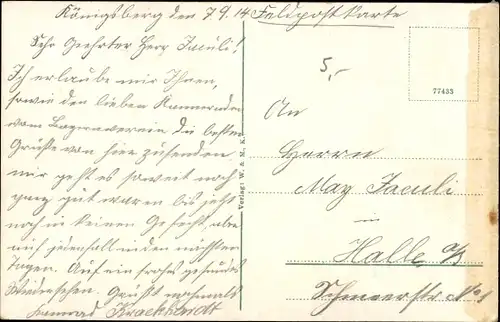 Königsberg den 7 9. 14 Feldpostkarte
Sehr Geehrter Herr Jaculi!
Ich erlaube mir Ihnen,
sowie den lieben Kameraden
vom Bayernverein die besten
Grüsse von hier zusenden
mir geht es soweit noch
ganz gut waren bis jetzt
noch in keinen Gefecht, aber
auf jedenfall in den nächsten
Tagen. Auf ein frohes gesundes
Wiedersehen. Grüßt nochmals
Kamerad
5,-
77433
Verlag: W. & M., K.
An
Herrn
Max Jaculi
in
Halle a/S
Schmeerstr No 1